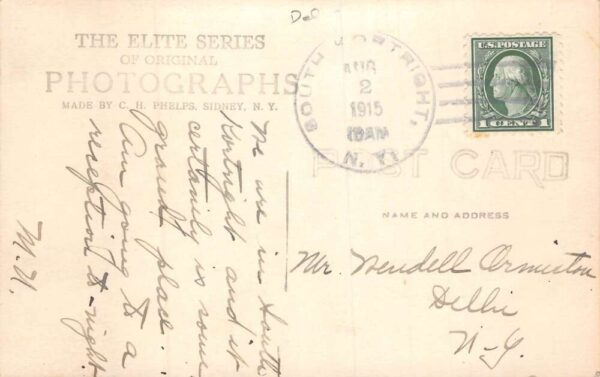 Del
THE ELITE SERIES
OF ORIGINAL
PHOTOGRAPHS
MADE BY C. H. PHELPS, SIDNEY, N. Y.
SOUTH KORTRIGHT,
AUG
2
1915
10AM
N. Y.
U.S. POSTAGE
1 CENT 1
POST CARD
NAME AND ADDRESS
We are in South
Kortright and it
certainly is some
grand place.
Am going to a
reception to-night.
M. U.
Mr. Wendell Ormiston
Delhi
N-Y.